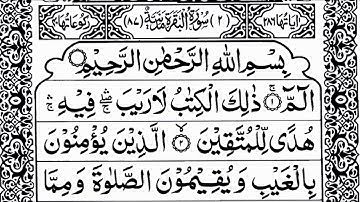 اٰیَاتُهَا ٢٨٦ (٢) سُوْرَةُ الْبَقَرَةِ مَدَنِیَّةٌ (٨٧) رُکُوْعَاتُهَا ٤٠
بِسْمِ اللهِ الرَّحْمٰنِ الرَّحِیْمِ
الٓمّٓ ۚ ١ ذٰلِكَ الْکِتٰبُ لَا رَیْبَ ۛ فِیْهِ ۛ
هُدًی لِّلْمُتَّقِیْنَ ۙ ٢ الَّذِیْنَ یُؤْمِنُوْنَ
بِالْغَیْبِ وَ یُقِیْمُوْنَ الصَّلٰوةَ وَ مِمَّا